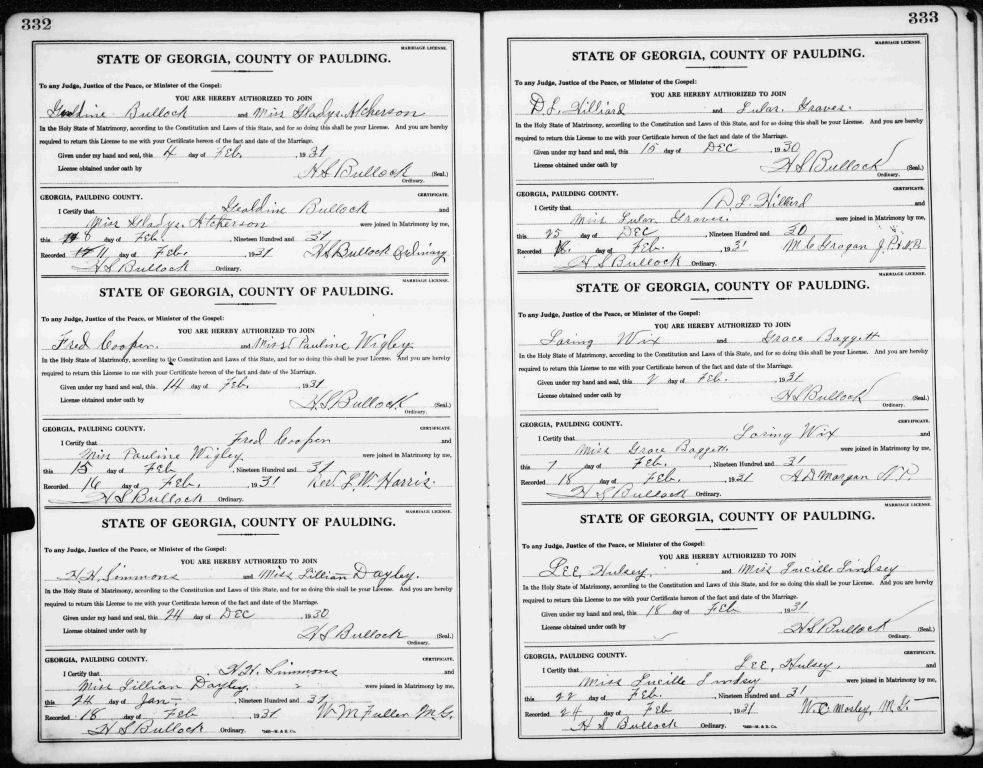 332
MARRIAGE LICENSE.
STATE OF GEORGIA, COUNTY OF PAULDING.
To any Judge, Justice of the Peace, or Minister of the Gospel:
YOU ARE HEREBY AUTHORIZED TO JOIN
Geraldine Bullock and Miss Gladys Atcherson
In the Holy State of Matrimony, according to the Constitution and Laws of this State, and for so doing this shall be your License. And you are hereby
required to return this License to me with your Certificate hereon of the fact and date of the Marriage.
Given under my hand and seal, this 4 day of Feb. , 1931
License obtained under oath by H S Bullock (Seal.)
Ordinary.
GEORGIA, PAULDING COUNTY. CERTIFICATE.
I Certify that Geraldine Bullock and
Miss Gladys Atcherson were joined in Matrimony by me,
this 8 day of Feb. , Nineteen Hundred and 31
Recorded 11 day of Feb. , 1931 H S Bullock Ordinary
H S Bullock Ordinary.
MARRIAGE LICENSE.
STATE OF GEORGIA, COUNTY OF PAULDING.
To any Judge, Justice of the Peace, or Minister of the Gospel:
YOU ARE HEREBY AUTHORIZED TO JOIN
Fred Cooper. and Miss Pauline Wigley
In the Holy State of Matrimony, according to the Constitution and Laws of this State, and for so doing this shall be your License. And you are hereby
required to return this License to me with your Certificate hereon of the fact and date of the Marriage.
Given under my hand and seal, this 14 day of Feb. , 1931
License obtained under oath by H S Bullock (Seal.)
Ordinary.
GEORGIA, PAULDING COUNTY. CERTIFICATE.
I Certify that Fred Cooper and
Miss Pauline Wigley were joined in Matrimony by me,
this 15 day of Feb , Nineteen Hundred and 31
Recorded 16 day of Feb. , 1931 Rev. L. W. Harris.
H S Bullock Ordinary.
MARRIAGE LICENSE.
STATE OF GEORGIA, COUNTY OF PAULDING.
To any Judge, Justice of the Peace, or Minister of the Gospel:
YOU ARE HEREBY AUTHORIZED TO JOIN
H. H. Simmons and Miss Lillian Dayley.
In the Holy State of Matrimony, according to the Constitution and Laws of this State, and for so doing this shall be your License. And you are hereby
required to return this License to me with your Certificate hereon of the fact and date of the Marriage.
Given under my hand and seal, this 24 day of DEC , 1930
License obtained under oath by H S Bullock (Seal.)
Ordinary.
GEORGIA, PAULDING COUNTY. CERTIFICATE.
I Certify that H. H. Simmons and
Miss Lillian Dayley were joined in Matrimony by me,
this 24 day of Jan , Nineteen Hundred and 31
Recorded 18 day of Feb , 1931 W. M. Fuller M. G.
H S Bullock Ordinary.
333
MARRIAGE LICENSE.
STATE OF GEORGIA, COUNTY OF PAULDING.
To any Judge, Justice of the Peace, or Minister of the Gospel:
YOU ARE HEREBY AUTHORIZED TO JOIN
D. L. Hilliard and Lular Graves.
In the Holy State of Matrimony, according to the Constitution and Laws of this State, and for so doing this shall be your License. And you are hereby
required to return this License to me with your Certificate hereon of the fact and date of the Marriage.
Given under my hand and seal, this 15 day of DEC , 1930
License obtained under oath by H S Bullock (Seal)
Ordinary.
GEORGIA, PAULDING COUNTY. CERTIFICATE.
I Certify that D. L. Hilliard and
Miss Lular Graves. were joined in Matrimony by me,
this 25 day of DEC , Nineteen Hundred and 30
Recorded 18 day of Feb. , 1931 M. C. Grogan J. P.
H S Bullock Ordinary.
MARRIAGE LICENSE.
STATE OF GEORGIA, COUNTY OF PAULDING.
To any Judge, Justice of the Peace, or Minister of the Gospel:
YOU ARE HEREBY AUTHORIZED TO JOIN
Loring Wix and Grace Baggett
In the Holy State of Matrimony, according to the Constitution and Laws of this State, and for so doing this shall be your License. And you are hereby
required to return this License to me with your Certificate hereon of the fact and date of the Marriage.
Given under my hand and seal, this day of Feb. , 1931
License obtained under oath by H S Bullock (Seal.)
Ordinary.
GEORGIA, PAULDING COUNTY. CERTIFICATE.
I Certify that Loring Wix and
Miss Grace Baggett were joined in Matrimony by me,
this 7 day of Feb. , Nineteen Hundred and 31
Recorded 18 day of Feb. , 1931 H D Morgan N. P.
H S Bullock Ordinary.
MARRIAGE LICENSE.
STATE OF GEORGIA, COUNTY OF PAULDING.
To any Judge, Justice of the Peace, or Minister of the Gospel:
YOU ARE HEREBY AUTHORIZED TO JOIN
LEE, Hulsey. and Miss Lucille Lindsey
In the Holy State of Matrimony, according to the Constitution and Laws of this State, and for so doing this shall be your License. And you are hereby
required to return this License to me with your Certificate hereon of the fact and date of the Marriage.
Given under my hand and seal, this 18 day of Feb , 1931
License obtained under oath by H S Bullock (Seal.)
Ordinary.
GEORGIA, PAULDING COUNTY. CERTIFICATE.
I Certify that LEE, Hulsey. and
Miss Lucille Lindsey were joined in Matrimony by me,
this 22 day of Feb. , Nineteen Hundred and 31
Recorded 24 day of Feb , 1931 W. C. Mosley, M. G.
H S Bullock Ordinary.